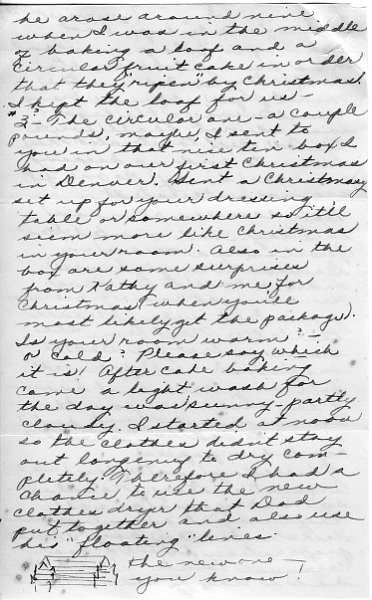 he arose around nine
when I was in the middle
of baking a loaf and a
circular fruit cake in order
that they "ripen" by Christmas.
I kept the loaf for us -
"3". The circular one - a couple
pounds, maybe, I sent to
you in that nice tin box I
had on our first Christmas
in Denver. Sent a Christmasy
set up for your dressing
table or somewhere so 'till
seem more like Christmas
in your room. Also in the
box are some surprises
from Kathy and me for
Christmas (when you'll
most likely get the package).
Is your room warm? -
or cold? Please say which
it is! After cake baking
came a light wash for
the day was sunny - partly
cloudy. I started at noon
so the clothes didn't stay
out long enuf to dry com-
pletely. Therefore I had a
chance to use the new
clothes dryer that Dad
put together and also use
his "floating" lines.
the new one -
you know!